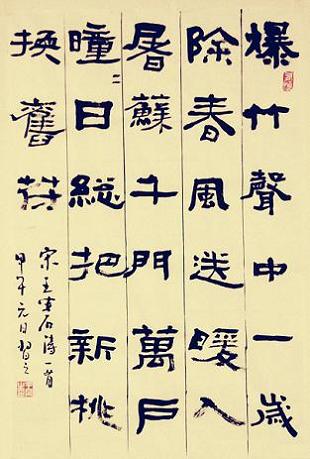 爆竹聲中一歲
除春風送暖入
屠蘇千門萬戶
曈〻日總把新桃
換舊苻
宋王安石詩一首
甲午元日